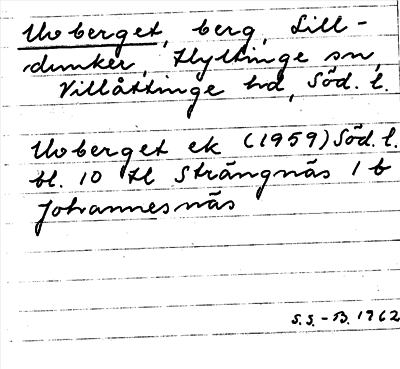 Uvberget, berg, Lill-
dunker, Hyltinge sn,
Villåttinge hd, Söd. l.
Uvberget ek (1959) Söd. l.
bl. 10 H Strängnäs 1 b
Johannesnäs
S.S.-B. 1962